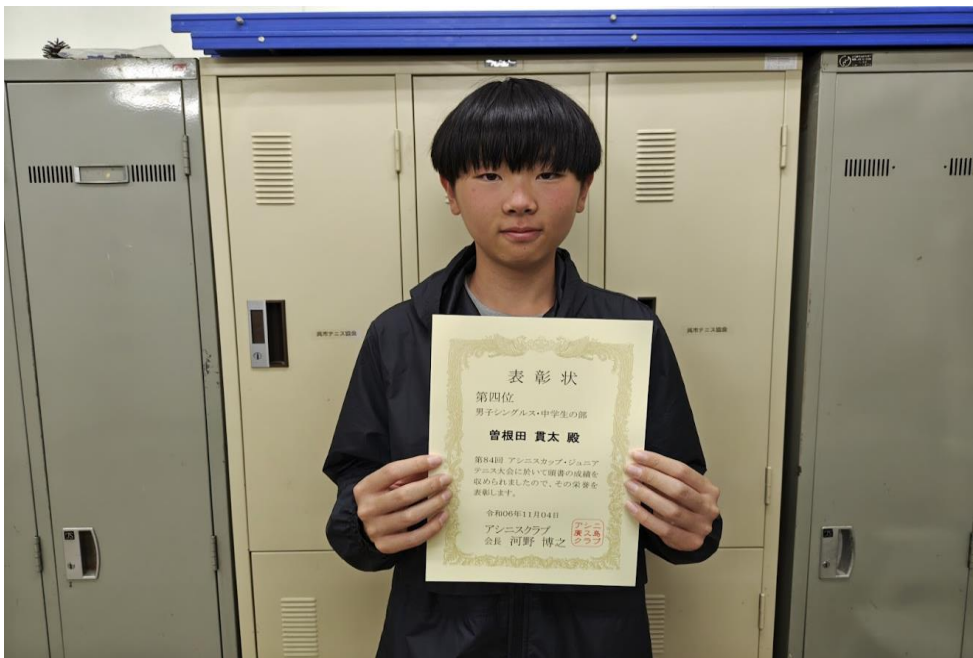 呉市テニス協会
呉市テニス協会
表彰状
第四位
男子シングルス・中学生の部
曽根田 貫太 殿
第84回 アシニスカップ・ジュニア
テニス大会に於いて頭書の成績を
収められましたので、その栄誉を
表彰します。
令和06年11月04日
アシニスクラブ
会長 河野 博之
アシニ
廣久島
クラブ